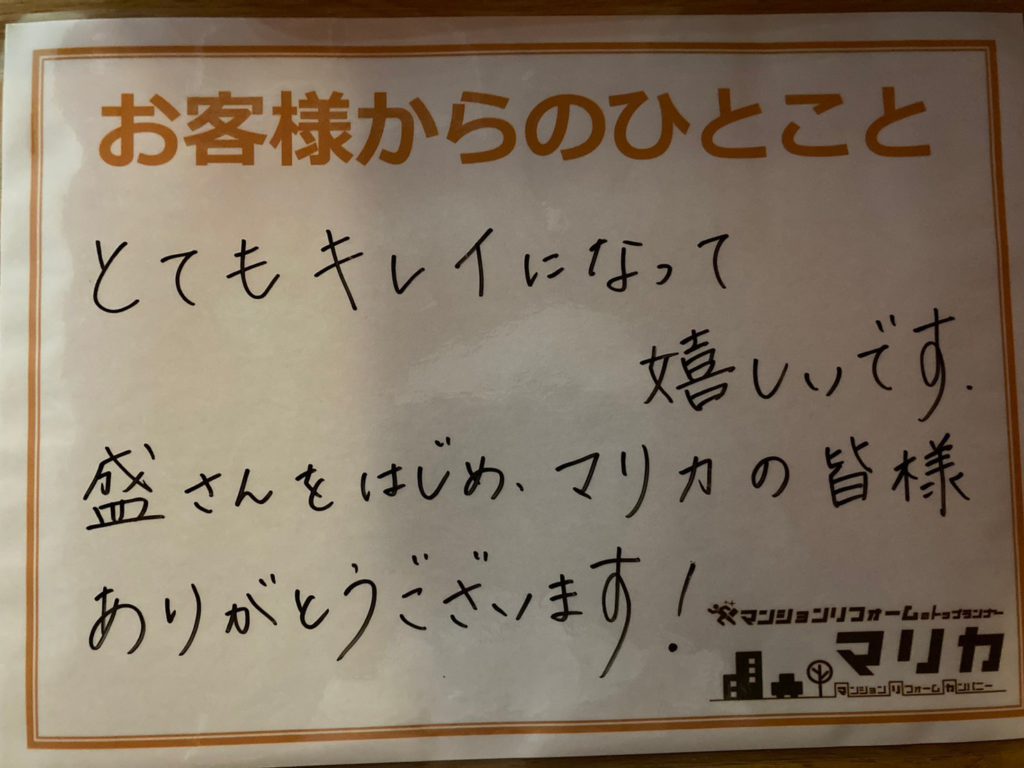 お客様からのひとこと
とてもキレイになって
嬉しいです.
盛さんをはじめ、マリカの皆様
ありがとうございます!
マンションリフォームのトップランナー
マリカ
マンションリフォームカンパニー